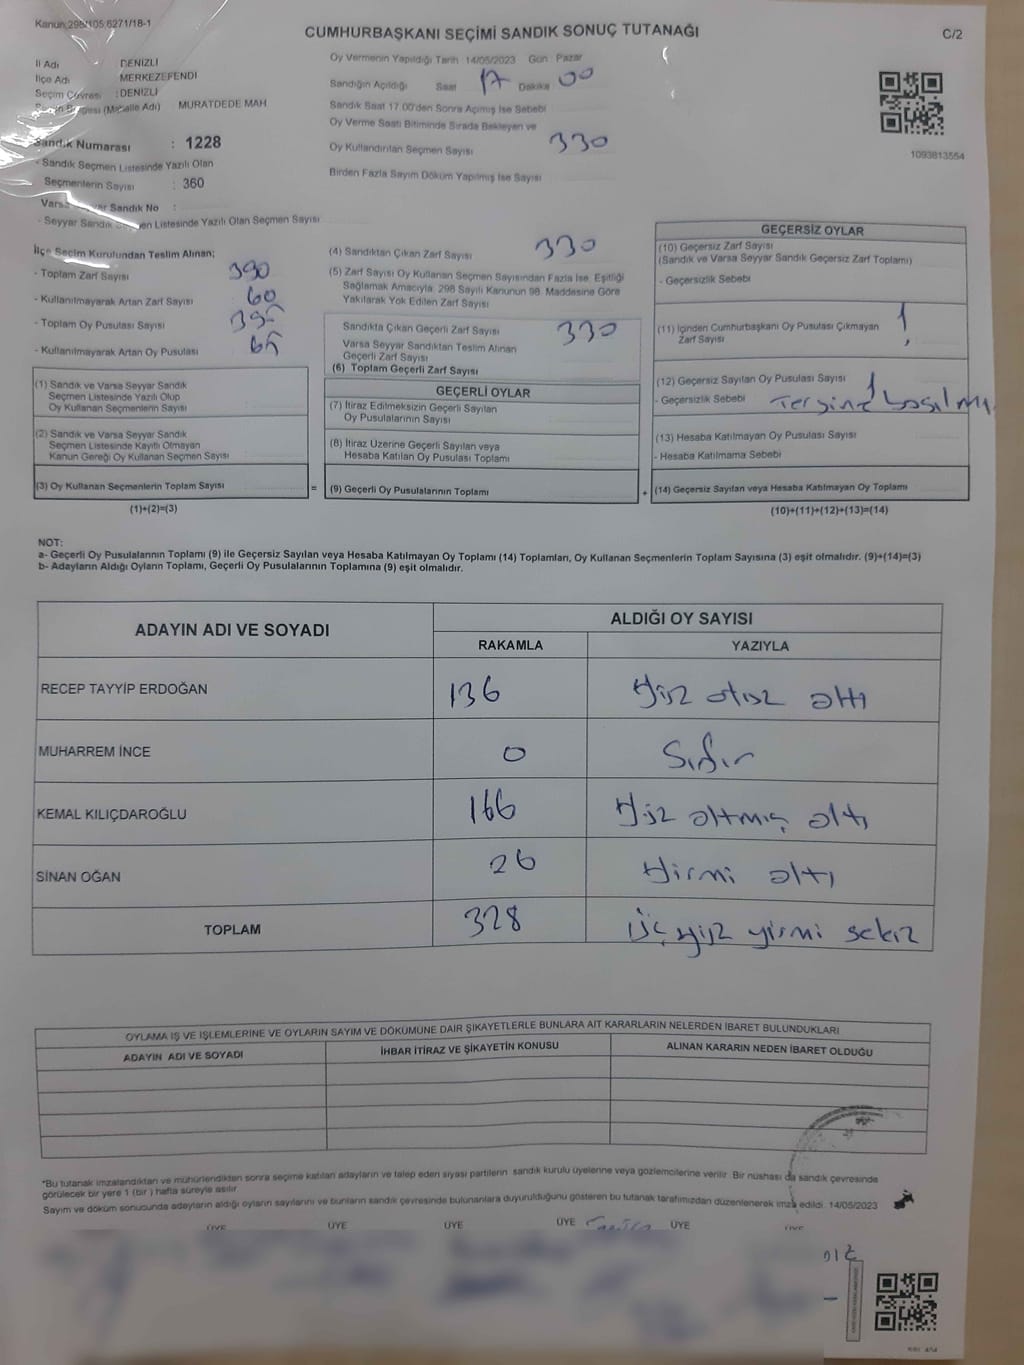 Kanun:298/105,6271/18-1
CUMHURBAŞKANI SEÇİMİ SANDIK SONUÇ TUTANAĞI
C/2
İl Adı : DENİZLİ
İlçe Adı MERKEZEFENDİ
Seçim Çevresi : DENİZLİ
(Mahalle Adı) : MURATDEDE MAH
Sandık Numarası : 1228
- Sandık Seçmen Listesinde Yazılı Olan
Seçmenlerin Sayısı : 360
Varsa Seyyar Sandık No :
- Seyyar Sandık Seçmen Listesinde Yazılı Olan Seçmen Sayısı
Oy Vermenin Yapıldığı Tarih 14/05/2023 Gün Pazar
Sandığın Açıldığı Saat 17 Dakika 00
Sandık Saat 17.00'den Sonra Açımış İse Sebebi
Oy Verme Saati Bitiminde Sırada Bekleyen ve
Oy Kullandırılan Seçmen Sayısı 330
Birden Fazla Sayım Döküm Yapılmış İse Sayısı
1093813554
İlçe Seçim Kurulundan Teslim Alınan;
- Toplam Zarf Sayısı 390
- Kullanılmayarak Artan Zarf Sayısı 60
- Toplam Oy Pusulası Sayısı 395
- Kullanılmayarak Artan Oy Pusulası 65
(1) Sandık ve Varsa Seyyar Sandık
Seçmen Listesinde Yazılı Olup
Oy Kullanan Seçmenlerin Sayısı
(2) Sandık ve Varsa Seyyar Sandık
Seçmen Listesinde Kayıtlı Olmayan
Kanun Gereği Oy Kullanan Seçmen Sayısı
(3) Oy Kullanan Seçmenlerin Toplam Sayısı
(1)+(2)=(3)
(4) Sandıktan Çıkan Zarf Sayısı 330
(5) Zarf Sayısı Oy Kullanan Seçmen Sayısından Fazla İse, Eşitliği
Sağlamak Amacıyla, 298 Sayılı Kanunun 98. Maddesine Göre
Yakılarak Yok Edilen Zarf Sayısı
Sandıkta Çıkan Geçerli Zarf Sayısı 330
Varsa Seyyar Sandıktan Teslim Alınan
Geçerli Zarf Sayısı
(6) Toplam Geçerli Zarf Sayısı
GEÇERLİ OYLAR
(7) İtiraz Edilmeksizin Geçerli Sayılan
Oy Pusulalarının Sayısı
(8) İtiraz Üzerine Geçerli Sayılan veya
Hesaba Katılan Oy Pusulası Toplamı
= (9) Geçerli Oy Pusulalarının Toplamı
GEÇERSİZ OYLAR
(10) Geçersiz Zarf Sayısı
(Sandık ve Varsa Seyyar Sandık Geçersiz Zarf Toplamı)
- Geçersizlik Sebebi
(11) İçinden Cumhurbaşkanı Oy Pusulası Çıkmayan
Zarf Sayısı 1
(12) Geçersiz Sayılan Oy Pusulası Sayısı 1
- Geçersizlik Sebebi Tersine basılmış
(13) Hesaba Katılmayan Oy Pusulası Sayısı
- Hesaba Katılmama Sebebi
+ (14) Geçersiz Sayılan veya Hesaba Katılmayan Oy Toplamı
(10)+(11)+(12)+(13)=(14)
NOT:
a- Geçerli Oy Pusulalarının Toplamı (9) ile Geçersiz Sayılan veya Hesaba Katılmayan Oy Toplamı (14) Toplamları, Oy Kullanan Seçmenlerin Toplam Sayısına (3) eşit olmalıdır. (9)+(14)=(3)
b- Adayların Aldığı Oyların Toplamı, Geçerli Oy Pusulalarının Toplamına (9) eşit olmalıdır.
ADAYIN ADI VE SOYADI
ALDIĞI OY SAYISI
RAKAMLA YAZIYLA
RECEP TAYYİP ERDOĞAN 136 Yüz otuz altı
MUHARREM İNCE 0 Sıfır
KEMAL KILIÇDAROĞLU 166 Yüz altmış altı
SİNAN OĞAN 26 Yirmi altı
TOPLAM 328 üç yüz yirmi sekiz
OYLAMA İŞ VE İŞLEMLERİNE VE OYLARIN SAYIM VE DÖKÜMÜNE DAİR ŞİKAYETLERLE BUNLARA AİT KARARLARIN NELERDEN İBARET BULUNDUKLARI
ADAYIN ADI VE SOYADI İHBAR İTİRAZ VE ŞİKAYETİN KONUSU ALINAN KARARIN NEDEN İBARET OLDUĞU
*Bu tutanak imzalandıktan ve mühürlendikten sonra seçime katılan adayların ve talep eden siyasi partilerin sandık kurulu üyelerine veya gözlemcilerine verilir. Bir nüshası da sandık çevresinde
görülecek bir yere 1 (bir ) hafta süreyle asılır.
Sayım ve döküm sonucunda adayların aldığı oyların sayılarını ve bunların sandık çevresinde bulunanlara duyurulduğunu gösteren bu tutanak tarafımızdan düzenlenerek imza edildi. 14/05/2023
ÜYE ÜYE ÜYE ÜYE ÜYE ÜYE